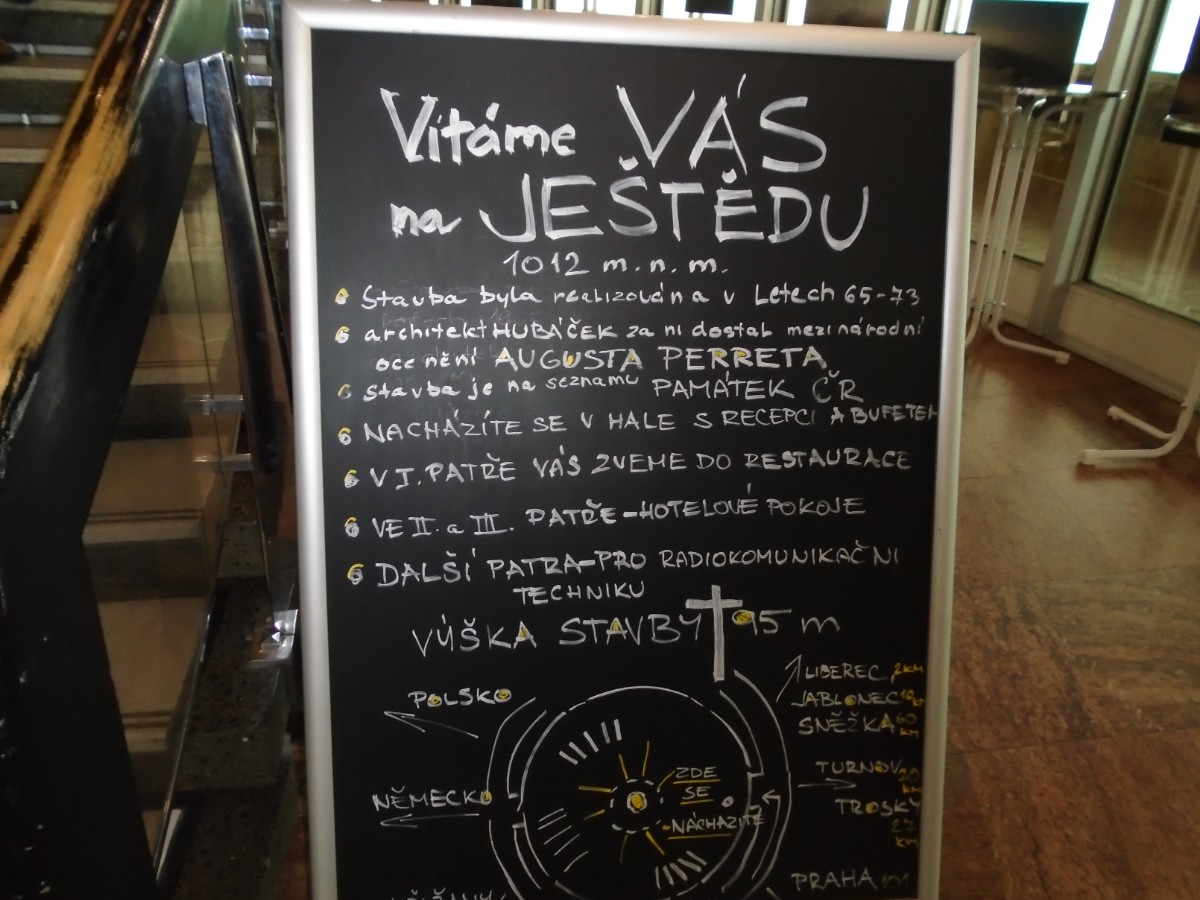 Vítáme VÁS
na JEŠTĚDU
1012 m. n. m.
Stavba byla realizována v Letech 65-73
architekt HUBÁČEK za ni dostal mezinárodní
ocenění AUGUSTA PERRETA
Stavba je na seznamu PAMÁTEK ČR
NACHÁZÍTE SE V HALE S RECEPCI A BUFETEM
V I. PATŘE VÁS ZVEME DO RESTAURACE
VE II. a III. PATŘE-HOTELOVÉ POKOJE
DALŠÍ PATRA-PRO RADIOKOMUNIKAČNI
TECHNIKU
VÚŠKA STAVBY 95 m
POLSKO
NĚMECKO
ZDE
SE
NÁCHAZITE
LIBEREC 2KM
JABLONEC
SNĚŽKA 60 KM
TURNOV 20 KM
TROSKY
KM
PRAHA 101